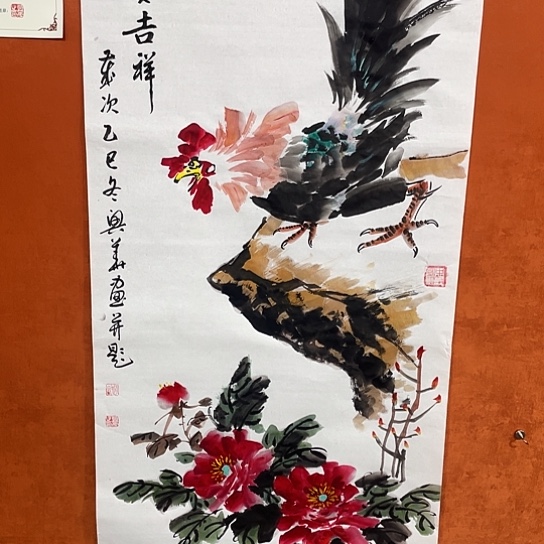 吉祥
岁次乙巳冬兴华画并题